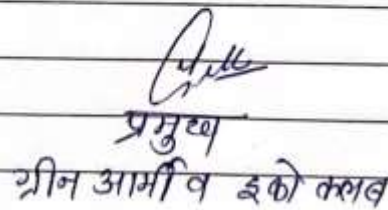 प्रमुख
ग्रीन आर्मी व इको क्लब